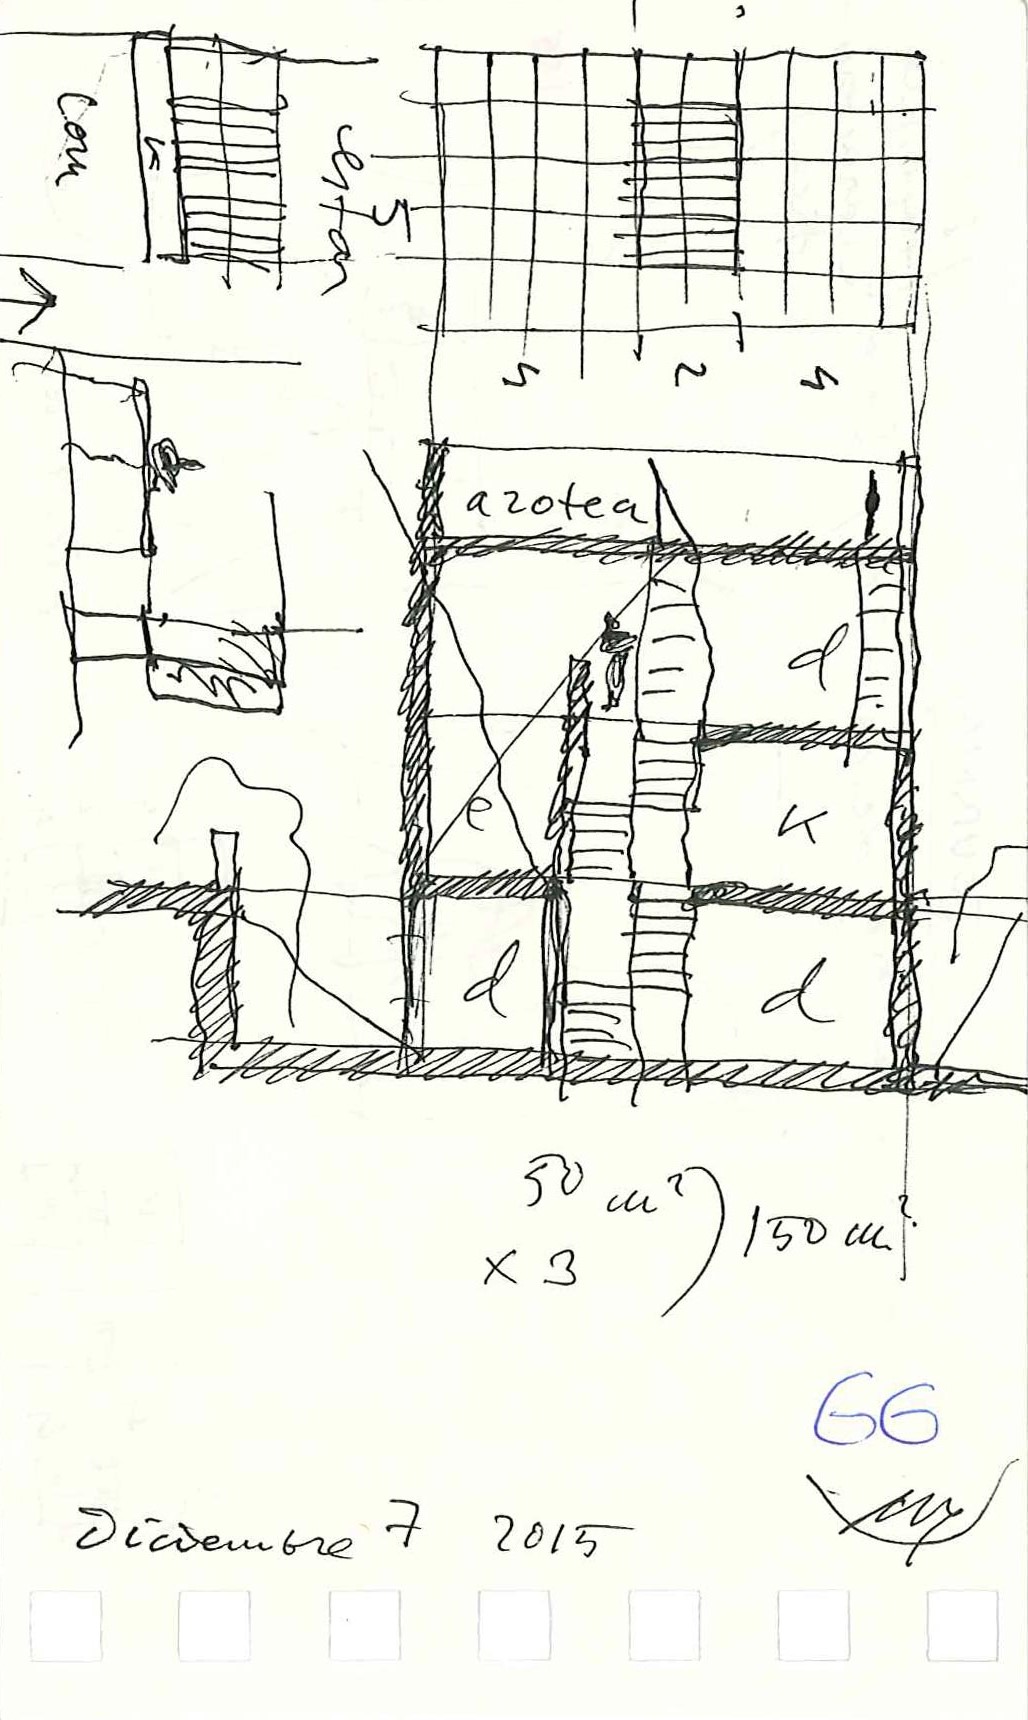 com
k
estar
5
4 2 4
azotea
d
e
K
d
d
50 m²
x 3
150 m²
GG
Diciembre 7 2015